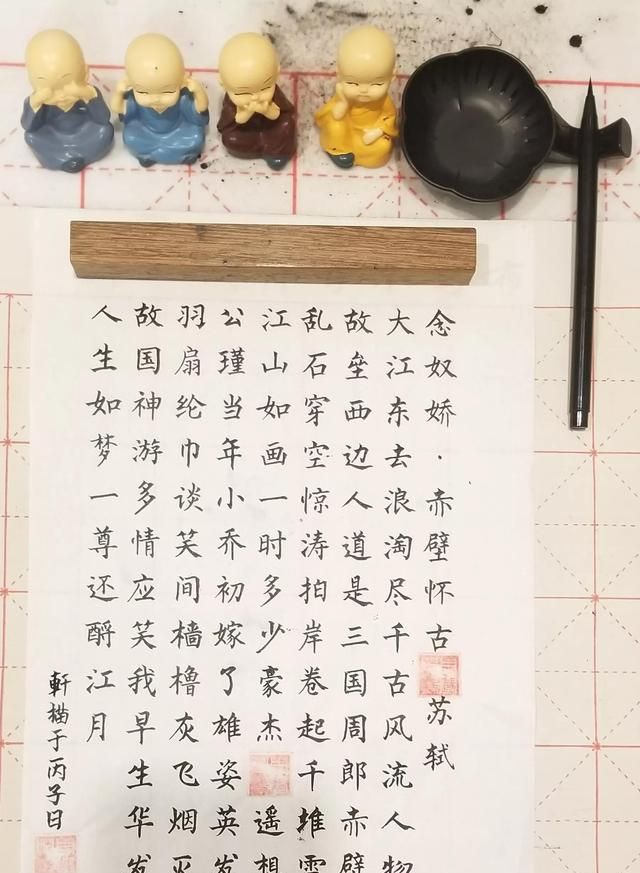 念奴娇·赤壁怀古 苏轼
大江东去浪淘尽千古风流人物
故垒西边人道是三国周郎赤壁
乱石穿空惊涛拍岸卷起千堆雪
江山如画一时多少豪杰 遥想
公瑾当年小乔初嫁了雄姿英发
羽扇纶巾谈笑间樯橹灰飞烟灭
故国神游多情应笑我早生华发
人生如梦一尊还酹江月
軒于丙子日